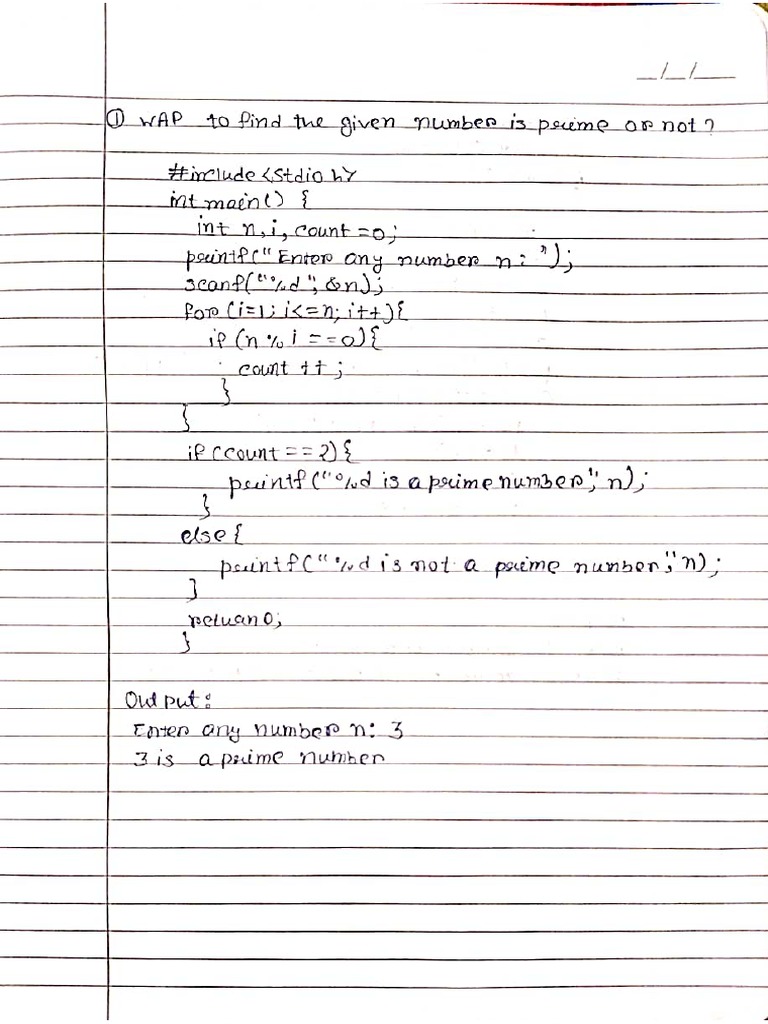 _/_/_
① WAP to find the given number is prime or not?
#include <stdio h>
int main() {
int n,i, count =0;
printf("Enter any number n: ");
scanf("%d", &n);
for (i=1; i<=n; i++){
if (n % i ==0){
count ++;
}
}
if (count == 2) {
printf("%d is a prime number", n);
}
else {
printf("%d is not a prime number", n);
}
return 0;
}
Output:
Enter any number n: 3
3 is a prime number